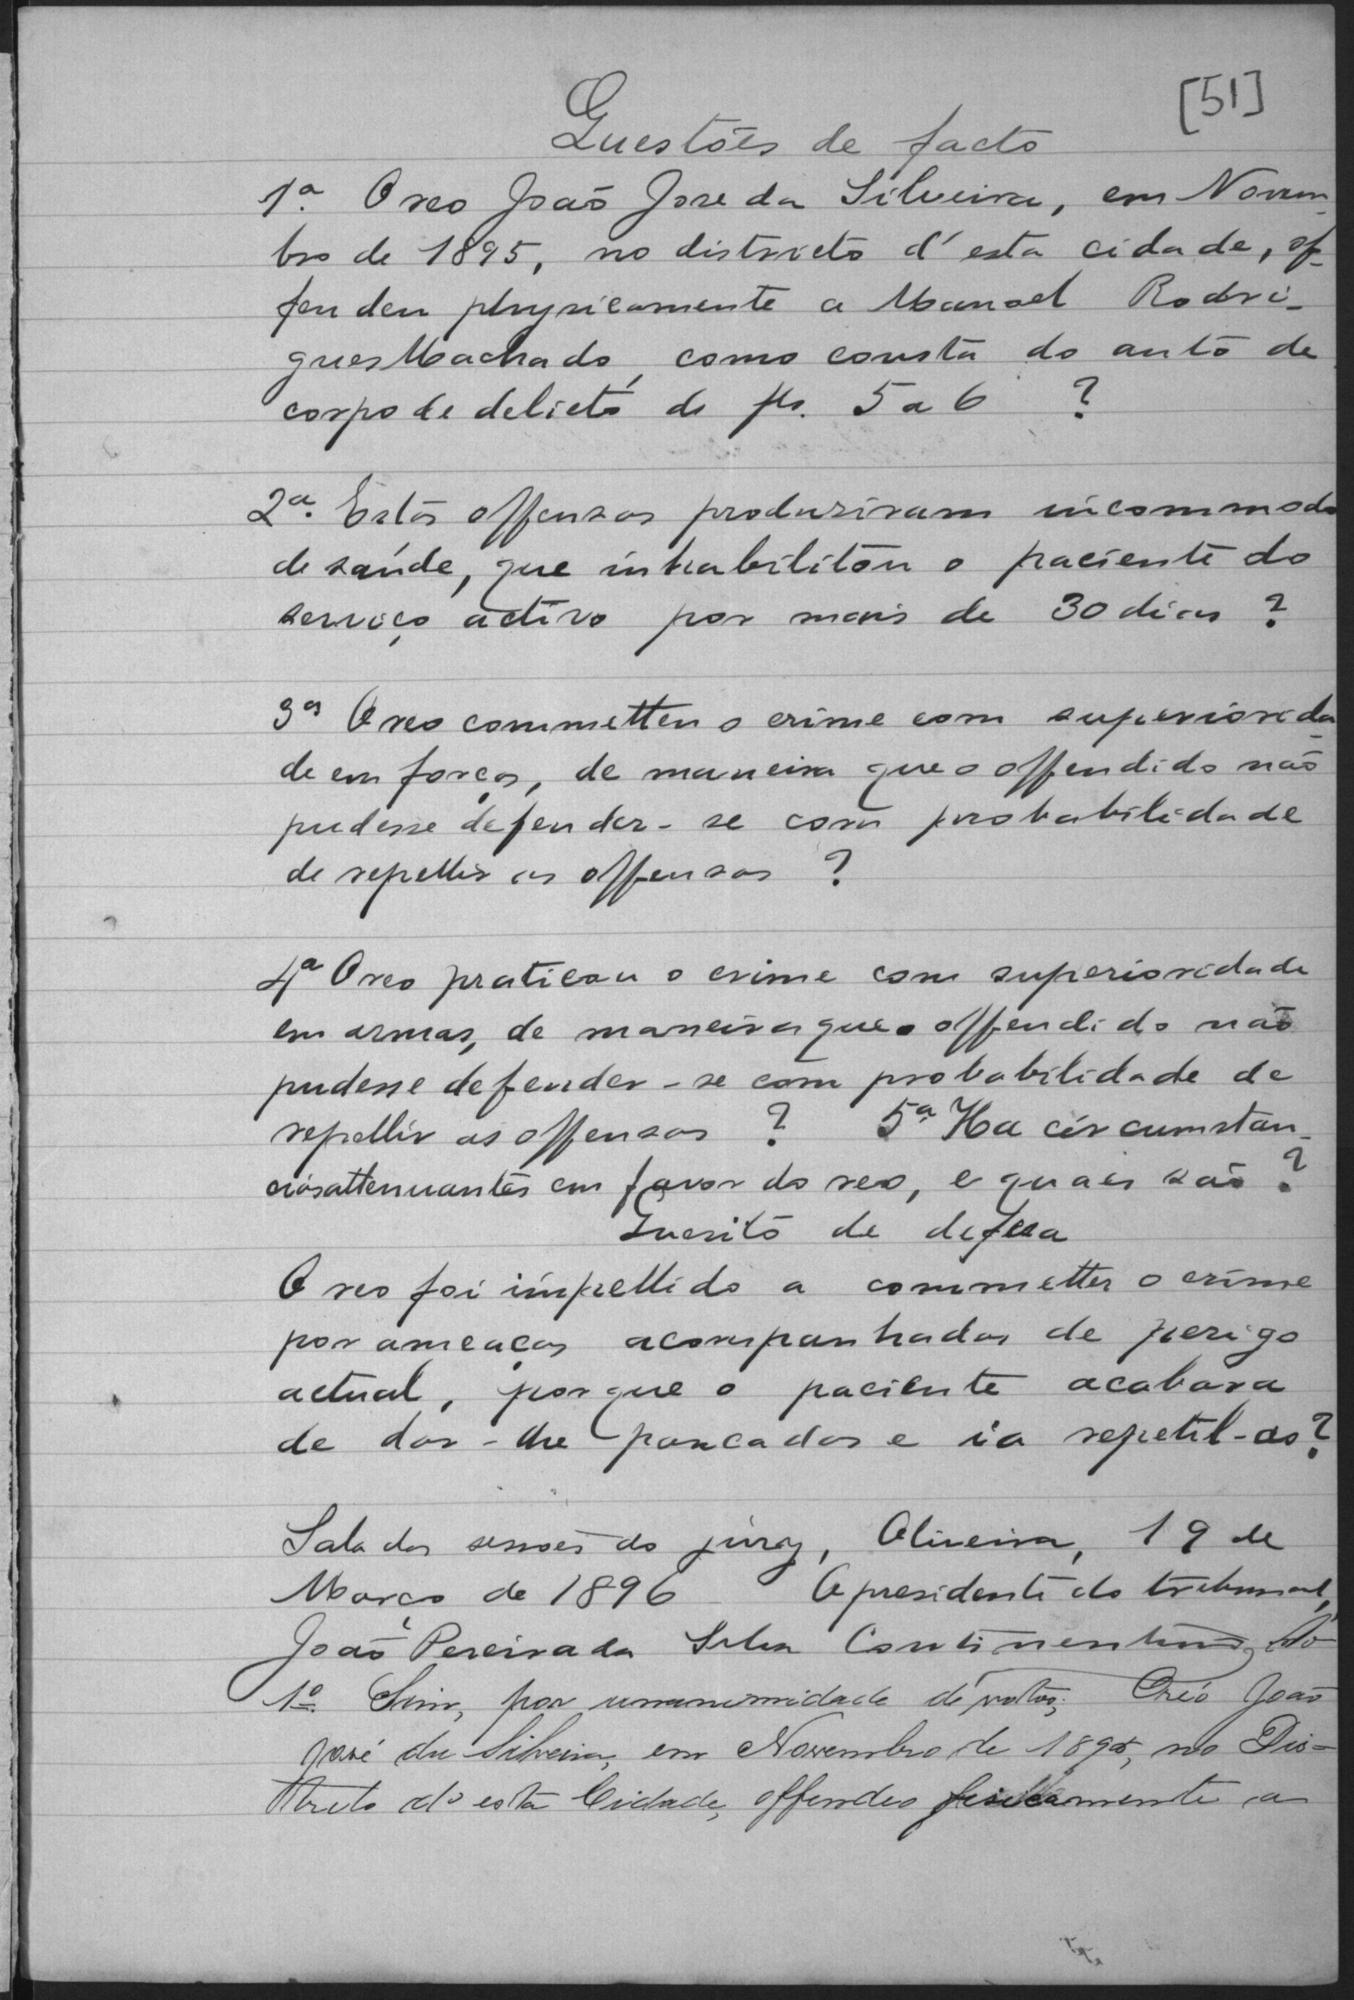 [51]
Questões de facto
1ª. O reo João Jose da Silveira, em Novem-
bro de 1895, no districto d'esta cidade, of-
fendeu physicamente a Manoel Rodri-
gues Machado, como consta do auto de
corpo de delicto de fls. 5 a 6 ?
2ª. Estas offensas produziram incommodo
de saúde, que inhabilitou o paciente do
serviço activo por mais de 30 dias ?
3ª O reo commetteu o crime com superiorida-
de em forças, de maneira que o offendido não
pudesse defender-se com probabilidade
de repellir as offensas ?
4ª O reo praticou o crime com superioridade
em armas, de maneira que o offendido não
pudesse defender-se com probabilidade de
repellir as offensas ? 5ª Ha circumstan-
cias attenuantes em favor do reo, e quaes são ?
Quesito de defesa
O reo foi impellido a commetter o crime
por ameaças acompanhadas de perigo
actual, porque o paciente acabara
de dar-lhe pancadas e ia repetil-as ?
Sala das sessões do jury, Oliveira, 19 de
Março de 1896 O presidente do tribunal,
João Pereira da Silva Continentino
1º. Sim, por unanimidade de votos; O reo João
José da Silveira, em Novembro de 1895, no Dis-
tricto d'esta Cidade, offendeo fisicamente a